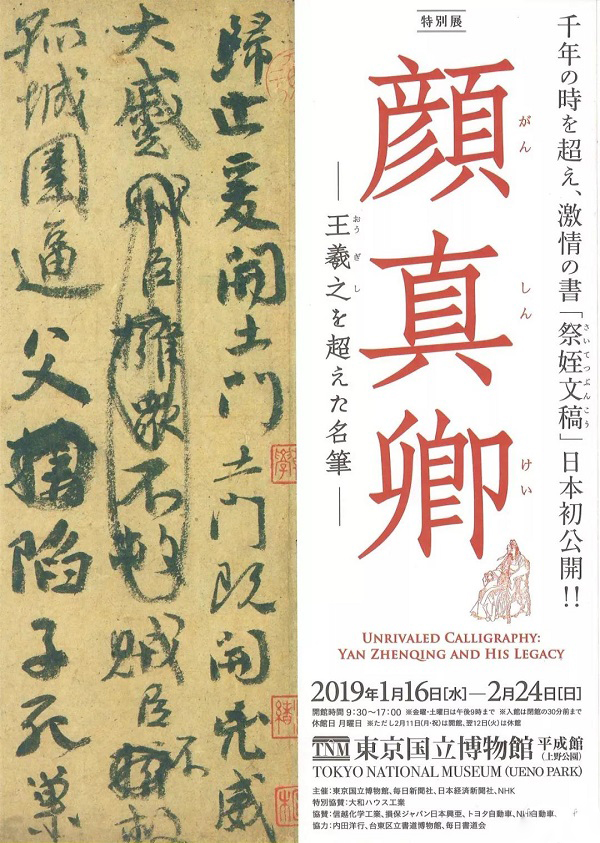 特別展
千年の時を超え、激情の書「祭姪文稿」日本初公開!!
さいてつぶんこう
顔真卿
がん しん けい
―王羲之を超えた名筆―
おう ぎ し
UNRIVALED CALLIGRAPHY:
YAN ZHENQING AND HIS LEGACY
2019年1月16日[水]―2月24日[日]
開館時間 9:30~17:00 ※金曜・土曜日は午後9時まで ※入館は閉館の30分前まで
休館日 月曜日 ※ただし2月11日(月・祝)は開館、翌12日(火)は休館
TNM 東京国立博物館 平成館
(上野公園)
TOKYO NATIONAL MUSEUM (UENO PARK)
主催:東京国立博物館、毎日新聞社、日本経済新聞社、NHK
特別協賛:大和ハウス工業
協賛:信越化学工業、損保ジャパン日本興亜、トヨタ自動車、
協力:内田洋行、台東区立書道博物館、毎日書道会
歸止爰開土門土門既開兇威
大蹙賊臣擁衆不救賊臣不救
孤城圍逼父陷子死巢